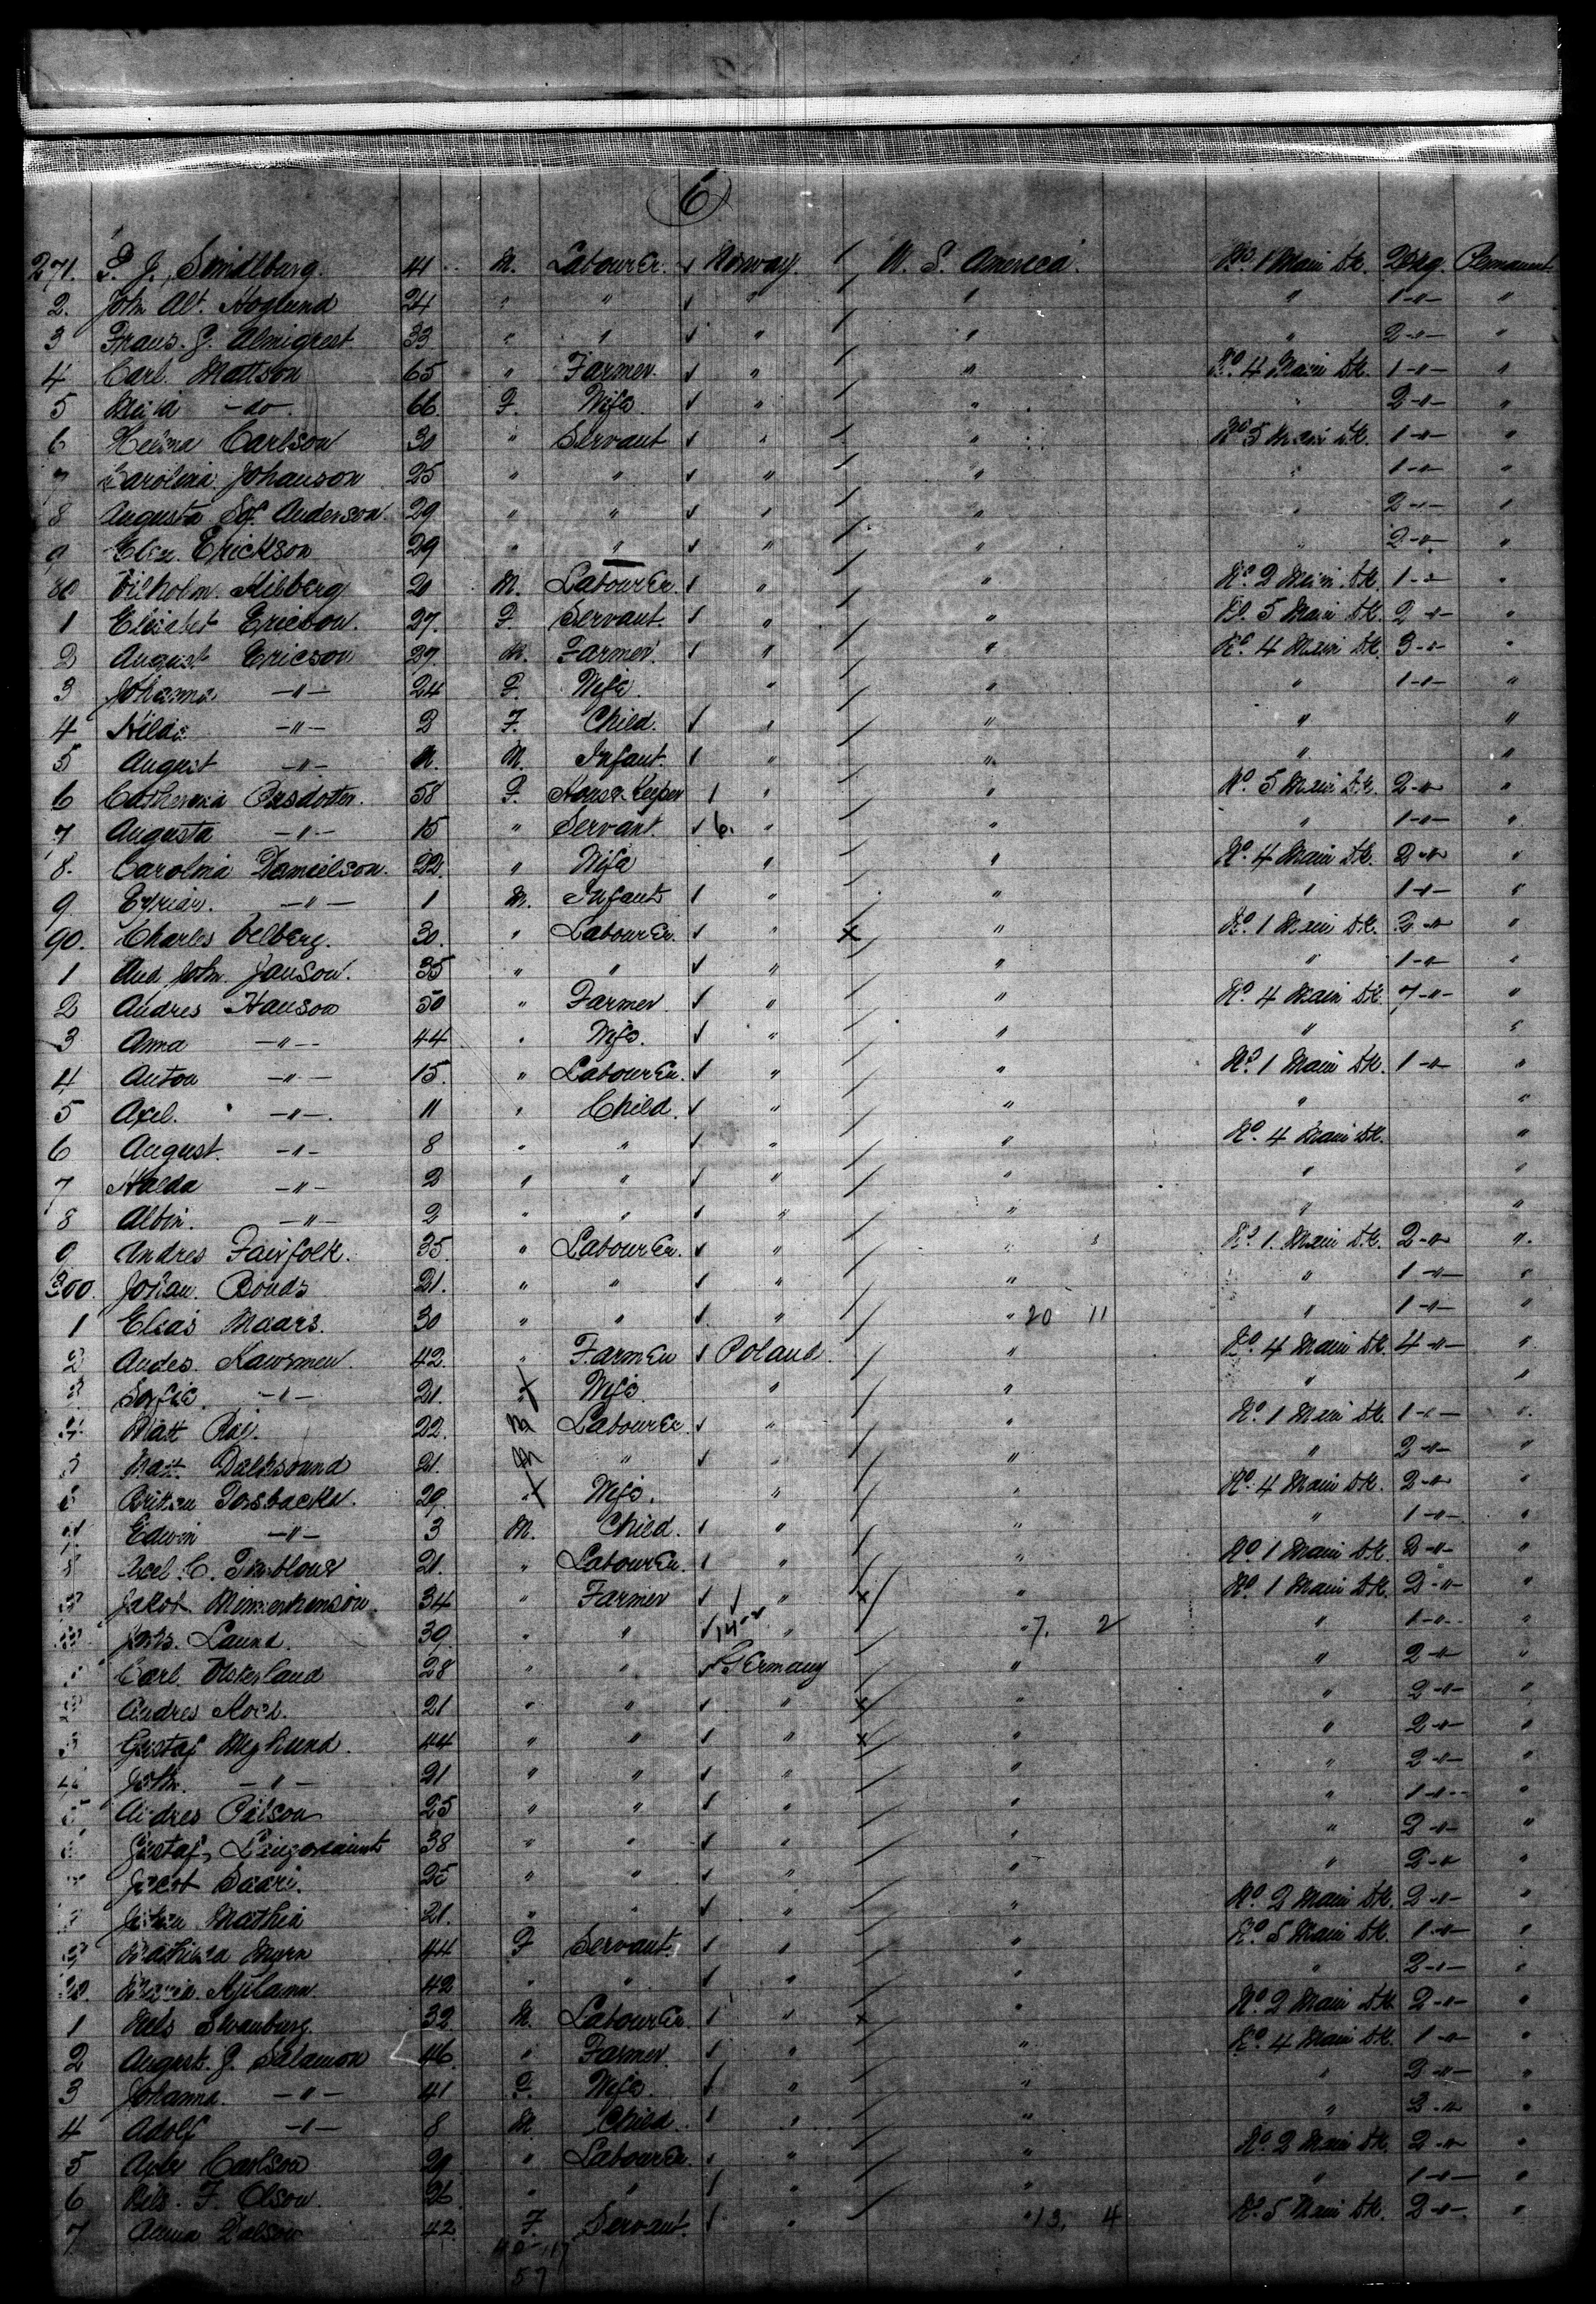 6
271. P. J. Smidlburg. 41 M. Labourer. Norway U. S. America. No. 1 Main Dk. 2 Bag. Permanent
2. John Alt. Hoglund 24 " " " " " 1 -"- "
3 Frans. J. Almigrest. 33 " " " " " 2 -"- "
4 Carl. Mattson 65 " Farmer. " " No. 4 Main Dk. 1 -"- "
5 -do- 66. F. Wife. " " " 2 -"- "
6 Carlson 30 " Servant " " No. 5 Main Dk. 1 -"- "
7 Carolina Johanson 25 " " " " " 1 -"- "
8 Augusta Sof. Anderson. 29 " " " " " 2 -"- "
9 Erickson 29 " " " " " 2 -"- "
80 Vilholm. Kilberg 20 M. Labourer. " " No. 2 Main Dk. 1 -"- "
1 Elisabet Ericson. 27. F Servant. " " No. 5 Main Dk. 2 -"- "
2 August Ericson 27. M. Farmer. " " No. 4 Main Dk. 3 -"- "
3 Johanna -"- 24 F. Wife. " " " 1 -"- "
4 Hilda -"- 2 F. Child. " " " "
5 August -"- M. Infant. " " " "
6 Catherina 58 F. House-Keeper " " No. 5 Main Dk. 2 -"- "
7 Augusta -"- 15 " Servant. 6. " " " 1 -"- "
8. Carolina Danielson. 22. " Wife " " No. 4 Main Dk. 2 -"- "
9 -"- 1 M. Infant " " " 1 -"- "
90. Charles Velberg. 30. " Labourer. " x " No. 1 Main Dk. 3 -"- "
1 And. John. Janson. 35 " " " " " 1 -"- "
2 Andres Hanson 50 " Farmer " " No. 4 Main Dk. 7 -"- "
3 Anna -"- 44 " Wife. " " " "
4 Anton -"- 15. " Labourer. " " No. 1 Main Dk. 1 -"- "
5 Axel. -"- 11 " Child. " " " "
6 August. -"- 8 " " " " No. 4 Main Dk. "
7 Halda -"- 2 " " " " " "
8 Albin. -"- 2 " " " " " "
9 Andres Fairfolk. 35. " Labourer. " " No. 1. Main Dk. 2 -"- "
300. Johan. Bonds 21. " " " " " 1 -"- "
1 Elias Maars. 30 " " " " 20 11 " 1 -"- "
2 Andes. 42. " Farmer Poland. " No. 4 Main Dk. 4 -"- "
3 Sofie. -"- 21. Wife " " " "
4 Matt 22. M Labourer. " " No. 1 Main Dk. 1 -"- "
5 Matt. 21. M " " " " 2 -"- "
6 29. Wife. " " No. 4 Main Dk. 2 -"- "
7 Edwin -"- 3 M. Child. " " " 1 -"- "
8 Axel. C. 21. " Labourer. " " No. 1 Main Dk. 2 -"- "
9 Jakob 34 " Farmer " x " No. 1 Main Dk. 2 -"- "
Laund. 39. " " 14 " " 7. 2 " 1 -"- "
Carl. 28 " " Germany " " 2 -"- "
Andres 21 " " " x " " 2 -"- "
3 Gustaf 44 " " " x " " 2 -"- "
4 John. -"- 21 " " " " " 2 -"- "
5 Andres 25 " " " " " 1 -"- "
Gustaf, 38 " " " " " 2 -"- "
Jacob Saari. 25 " " " " " 2 -"- "
Mathia 21. " " " " No. 2 Main Dk. 2 -"- "
44 F Servant. " " No. 5 Main Dk. 1 -"- "
20. 42 " " " " " 2 -"- "
1 Nels Swanburg. 32. M. Labourer. " x " No. 2 Main Dk. 2 -"- "
2 August. J. Salamon 46. " Farmer. " " No. 4 Main Dk. 1 -"- "
3 Johanna. -"- 41 F. Wife. " " " 2 -"- "
4 Adolf -"- 8 M. Child. " " " 3 -"- "
5 Carlson 29 " Labourer. " " No. 2 Main Dk. 2 -"- "
6 Nels. F. Olson. 26 " " " " " 1 -"- "
7 Anna 42 F. Servant. " " 13. 4 No. 5 Main Dk. 2 -"- "
40-17
57